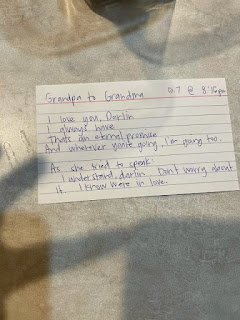 Grandpa to Grandma 9.7 @ 8:16pm
I love you, Darlin
I always have
Thats an eternal promise
And wherever you're going, I'm going too.
As she tried to speak
I understand, darlin. Don't worry about
it. I know we're in love.